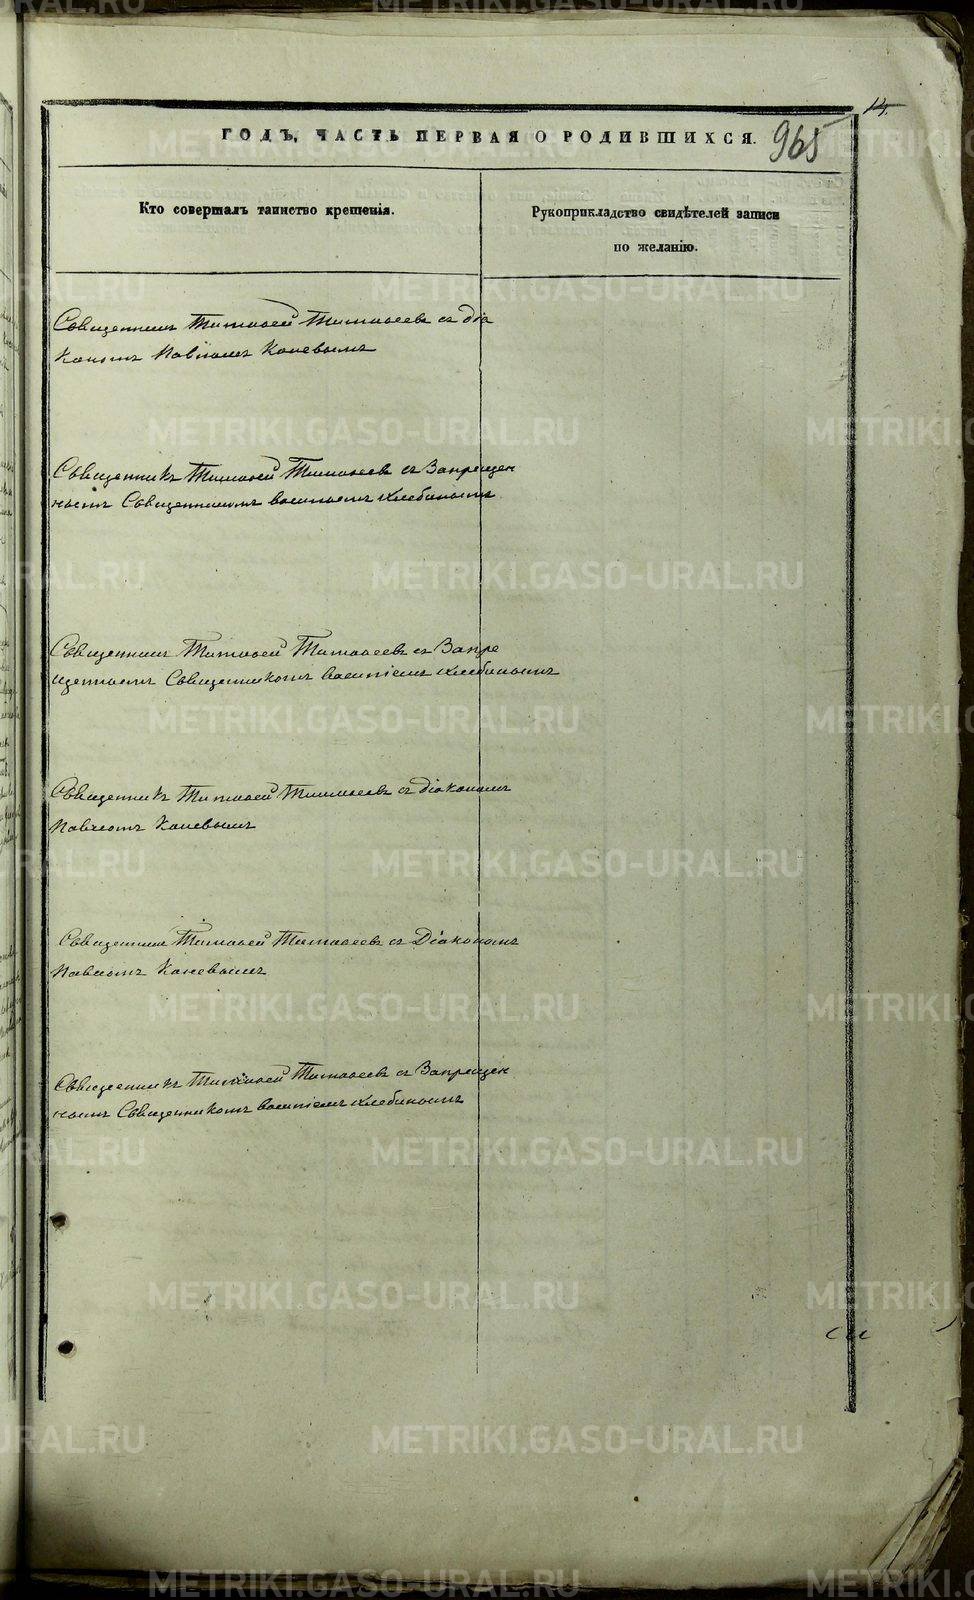 14.
ГОДЪ, ЧАСТЬ ПЕРВАЯ О РОДИВШИХСЯ.
965
Кто совершалъ таинство крещенія.
Рукоприкладство свидѣтелей записи
по желанію.
Священникъ Тимоѳей Тимоѳеевъ съ діа
кономъ Павломъ Каневымъ
Священникъ Тимоѳей Тимоѳеевъ съ Запрещен
нымъ Священникомъ Василіемъ Хлебинымъ
Священникъ Тимоѳей Тимоѳеевъ съ Запре
щеннымъ Священникомъ Василіемъ Хлебинымъ
Священникъ Тимоѳей Тимоѳеевъ съ діакономъ
Павломъ Каневымъ
Священникъ Тимоѳей Тимоѳеевъ съ Діакономъ
Павломъ Каневымъ
Священникъ Тимоѳей Тимоѳеевъ съ Запрещен
нымъ Священникомъ Василіемъ Хлебинымъ
METRIKI.GASO-URAL.RU